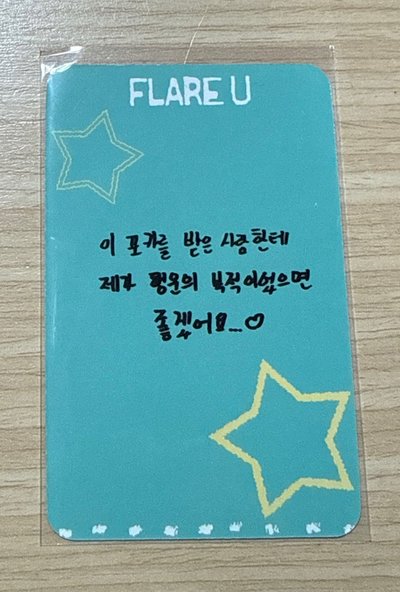 FLARE U
이 포카를 받은 사람한테
제가 행운의 부적이었으면
좋겠어요...♡